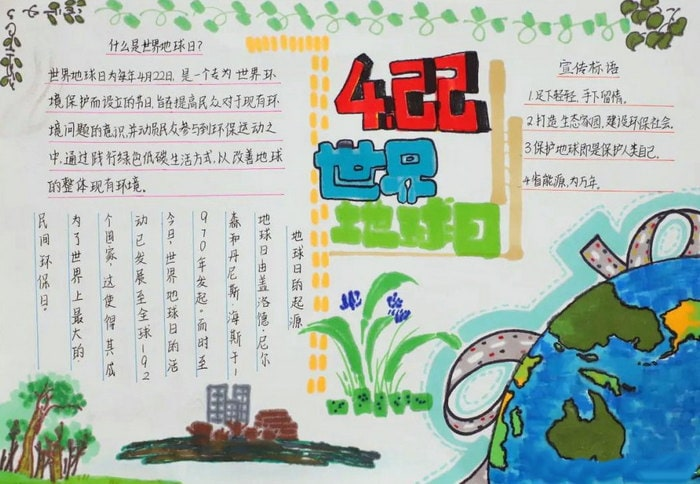 什么是世界地球日？
世界地球日为每年4月22日，是一个专为世界环
境保护而设立的节日，旨在提高民众对于现有环
境问题的意识，并动员民众参与到环保运动之
中，通过践行绿色低碳生活方式，以改善地球
的整体现有环境。
4.22
世界
地球日
宣传标语
1.足下轻轻，手下留情。
2.打造生态家园，建设环保社会。
3.保护地球即是保护人类自己。
4.省能源，为万年。
地球日的起源
地球日由盖洛德·尼尔
森和丹尼斯·海斯于1
970年发起。而时至
今日，世界地球日的活
动已发展至全球192
个国家，这使得其成
为了世界上最大的
民间环保日。